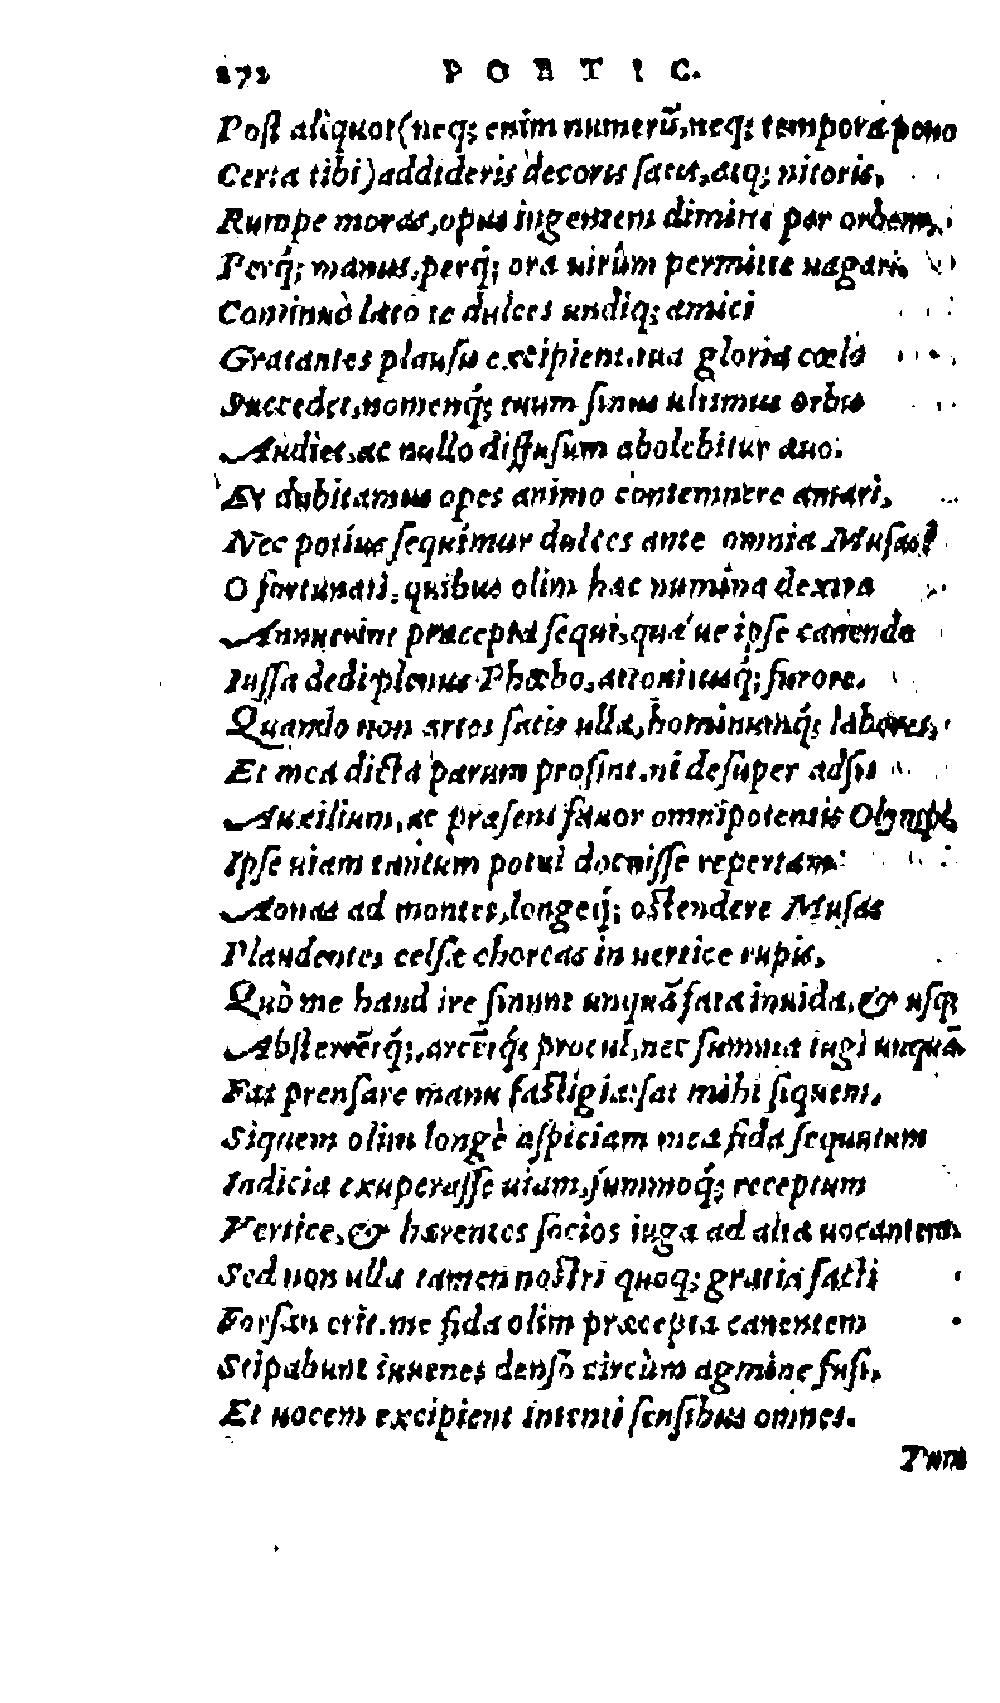 272 POETIC.
Post aliquot (neq; enim numerũ, neq; tempora pono
Certa tibi) addideris decoris satis, atq; nitoris,
Rumpe moras, opus ingentem dimitte per orbem,
Perq́; manus, perq́; ora uirûm permitte uagari.
Continuò læto te dulces undiq; amici
Gratantes plausu excipient. tua gloria cœlo
Succedet, nomenq́; tuum sinus ultimus orbis
Audiet, ac nullo diffusum abolebitur æuo.
Et dubitamus opes animo contemnere auari,
Nec potius sequimur dulces ante omnia Musas?
O fortunati, quibus olim hæc numina dextra
Annuerint præcepta sequi, quæ'ue ipse canendo
Iussa dedi plenus Phœbo, attonitusq́; furore.
Quando non artes satis ullæ, hominumq́; labores,
Et mea dicta parum prosint, ni desuper adsit
Auxilium, ac præsens fauor omnipotentis Olympi.
Ipse uiam tantum potui docuisse repertam
Aonas ad montes, longeq́; ostendere Musas
Plaudentes celsæ choreas in uertice rupis,
Quò me haud ire sinunt unquã fata inuida, & usq;
Absterrẽtq́;, arcẽtq́; procul, nec summa iugi unquã
Fas prensare manu fastigia: sat mihi siquem,
Siquem olim longè aspiciam mea fida sequutum
Indicia exuperasse uiam, summoq́; receptum
Vertice, & hærentes socios iuga ad alta uocantem.
Sed non ulla tamen nostri quoq; gratia facti
Forsan erit. me fida olim præcepta canentem
Stipabunt iuuenes denso circùm agmine fusi,
Et uocem excipient intenti sensibus omnes.
Tum